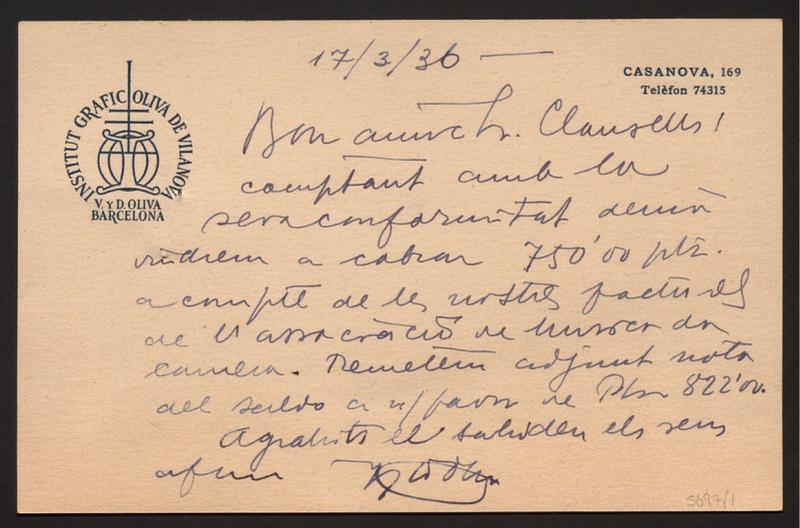 17/3/36 —
CASANOVA, 169
Telèfon 74315
INSTITUT GRAFIC OLIVA DE VILANOVA
V. Y D. OLIVA
BARCELONA
Bon amic Sr. Clausells!
comptant amb la
seva conformitat demà
vindrem a cobrar 750'00 pts.
a compte de les nostres factures
de l'associació de musica da
camera. Remetem adjunt nota
del saldo a n/favor de Pts 822'00.
Agraïts el saluden els seus
afms
5697/1